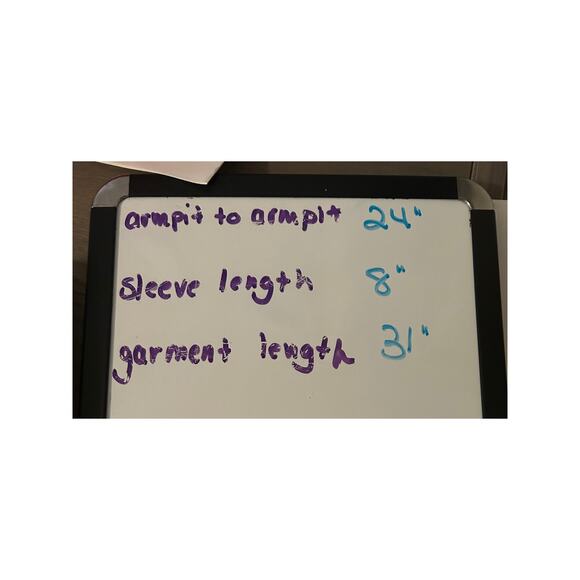 armpit to armpit 24"
sleeve length 8"
garment length 31"